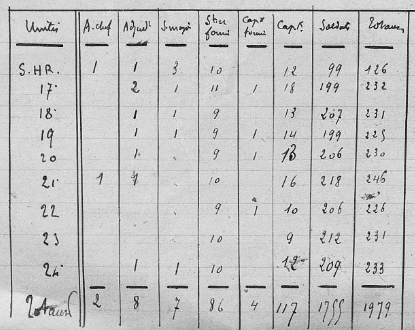 Unités A.chef Adjudt S.major Sher fourri Capx fourri Capx. Soldats Totaux
S.HR. 1 1 3 10 12 99 126
17 2 1 11 1 18 199 232
18 1 1 9 13 207 231
19 1 1 9 1 14 199 225
20 1 9 1 13 206 230
21 1 1 10 16 218 246
22 9 1 10 206 226
23 10 9 212 231
24 1 1 10 12 209 233
Totaux 2 8 7 86 4 117 1755 1979